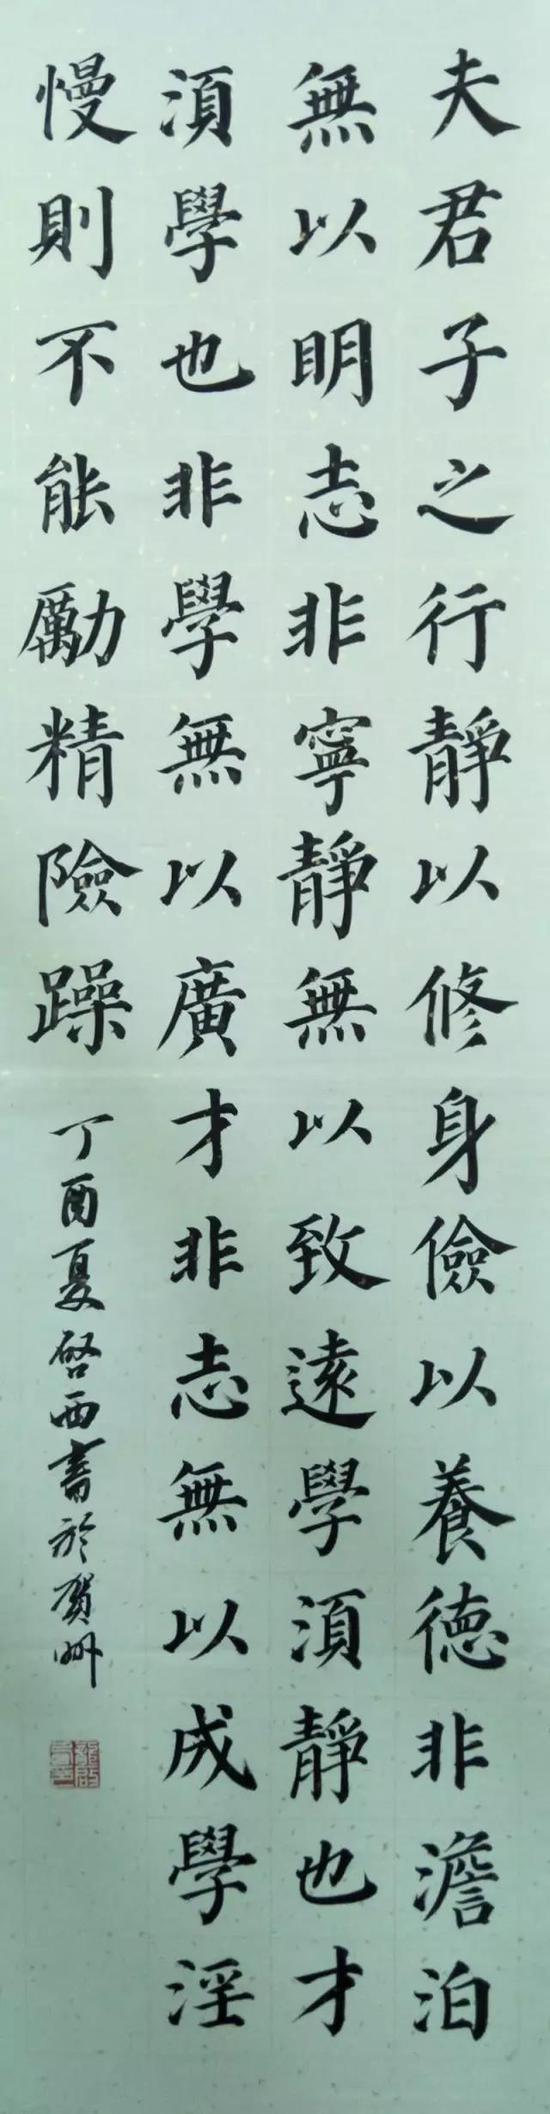 夫君子之行靜以修身儉以養德非澹泊
無以明志非寧靜無以致遠學湏靜也才
湏學也非學無以廣才非志無以成學淫
慢則不能勵精險躁
丁酉夏啓西書於賀州